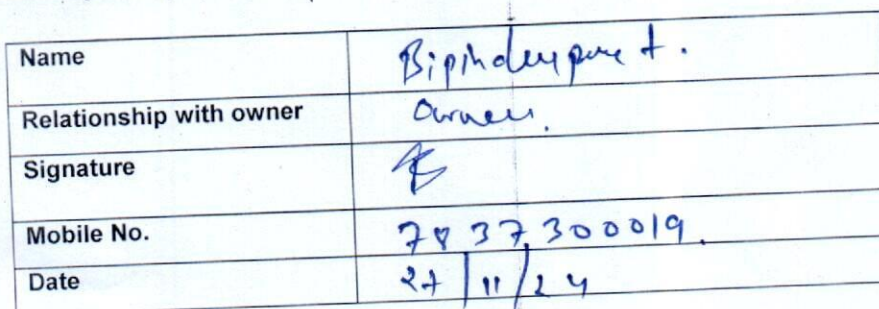 Name
Relationship with owner Owner.
Signature
Mobile No. 7837300019.
Date 27/11/24